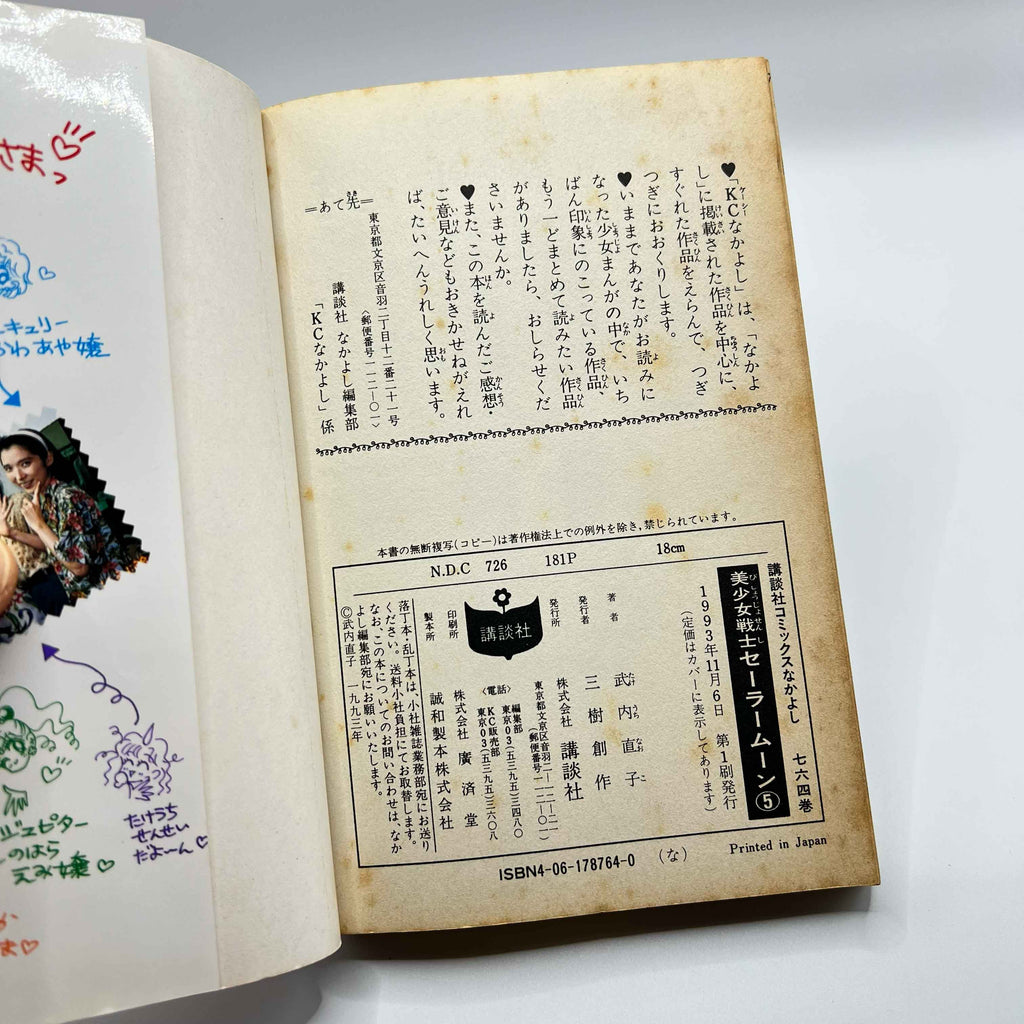 さまっ
キュリー
わあや嬢
たけうち
せんせい
だよーん
ジュピター
のはら
えみ嬢
♥「KCなかよし」は、「なかよ
し」に掲載された作品を中心に、
すぐれた作品をえらんで、つぎ
つぎにおおくりします。
♥いままであなたがお読みに
なった少女まんがの中で、いち
ばん印象にのこっている作品、
もう一どまとめて読みたい作品
がありましたら、おしらせくだ
さいませんか。
♥また、この本を読んだご感想・
ご意見などもおきかせねがえれ
ば、たいへんうれしく思います。
＝あて先＝
東京都文京区音羽二丁目十二番二十一号
〈郵便番号一一二-〇一〉
講談社 なかよし編集部
「KCなかよし」係
本書の無断複写(コピー)は著作権法上での例外を除き,禁じられています。
N.D.C 726 181P 18cm
講談社コミックスなかよし 七六四巻
美少女戦士セーラームーン⑤
1993年11月6日 第1刷発行
(定価はカバーに表示してあります)
著者 武内直子
発行者 三樹創作
発行所 株式会社 講談社
東京都文京区音羽二-一二-二一
(郵便番号一一二-〇一)
〈電話〉 編集部 東京03(五三九五)三四八〇
KC販売部 東京03(五三九五)三六〇八
講談社
印刷所 株式会社 廣済堂
製本所 誠和製本株式会社
落丁本・乱丁本は、小社雑誌業務部宛にお送り
ください。送料小社負担にてお取替します。
なお、この本についてのお問い合わせは、なか
よし編集部宛にお願いいたします。
©武内直子 一九九三年
ISBN4-06-178764-0 (な) Printed in Japan